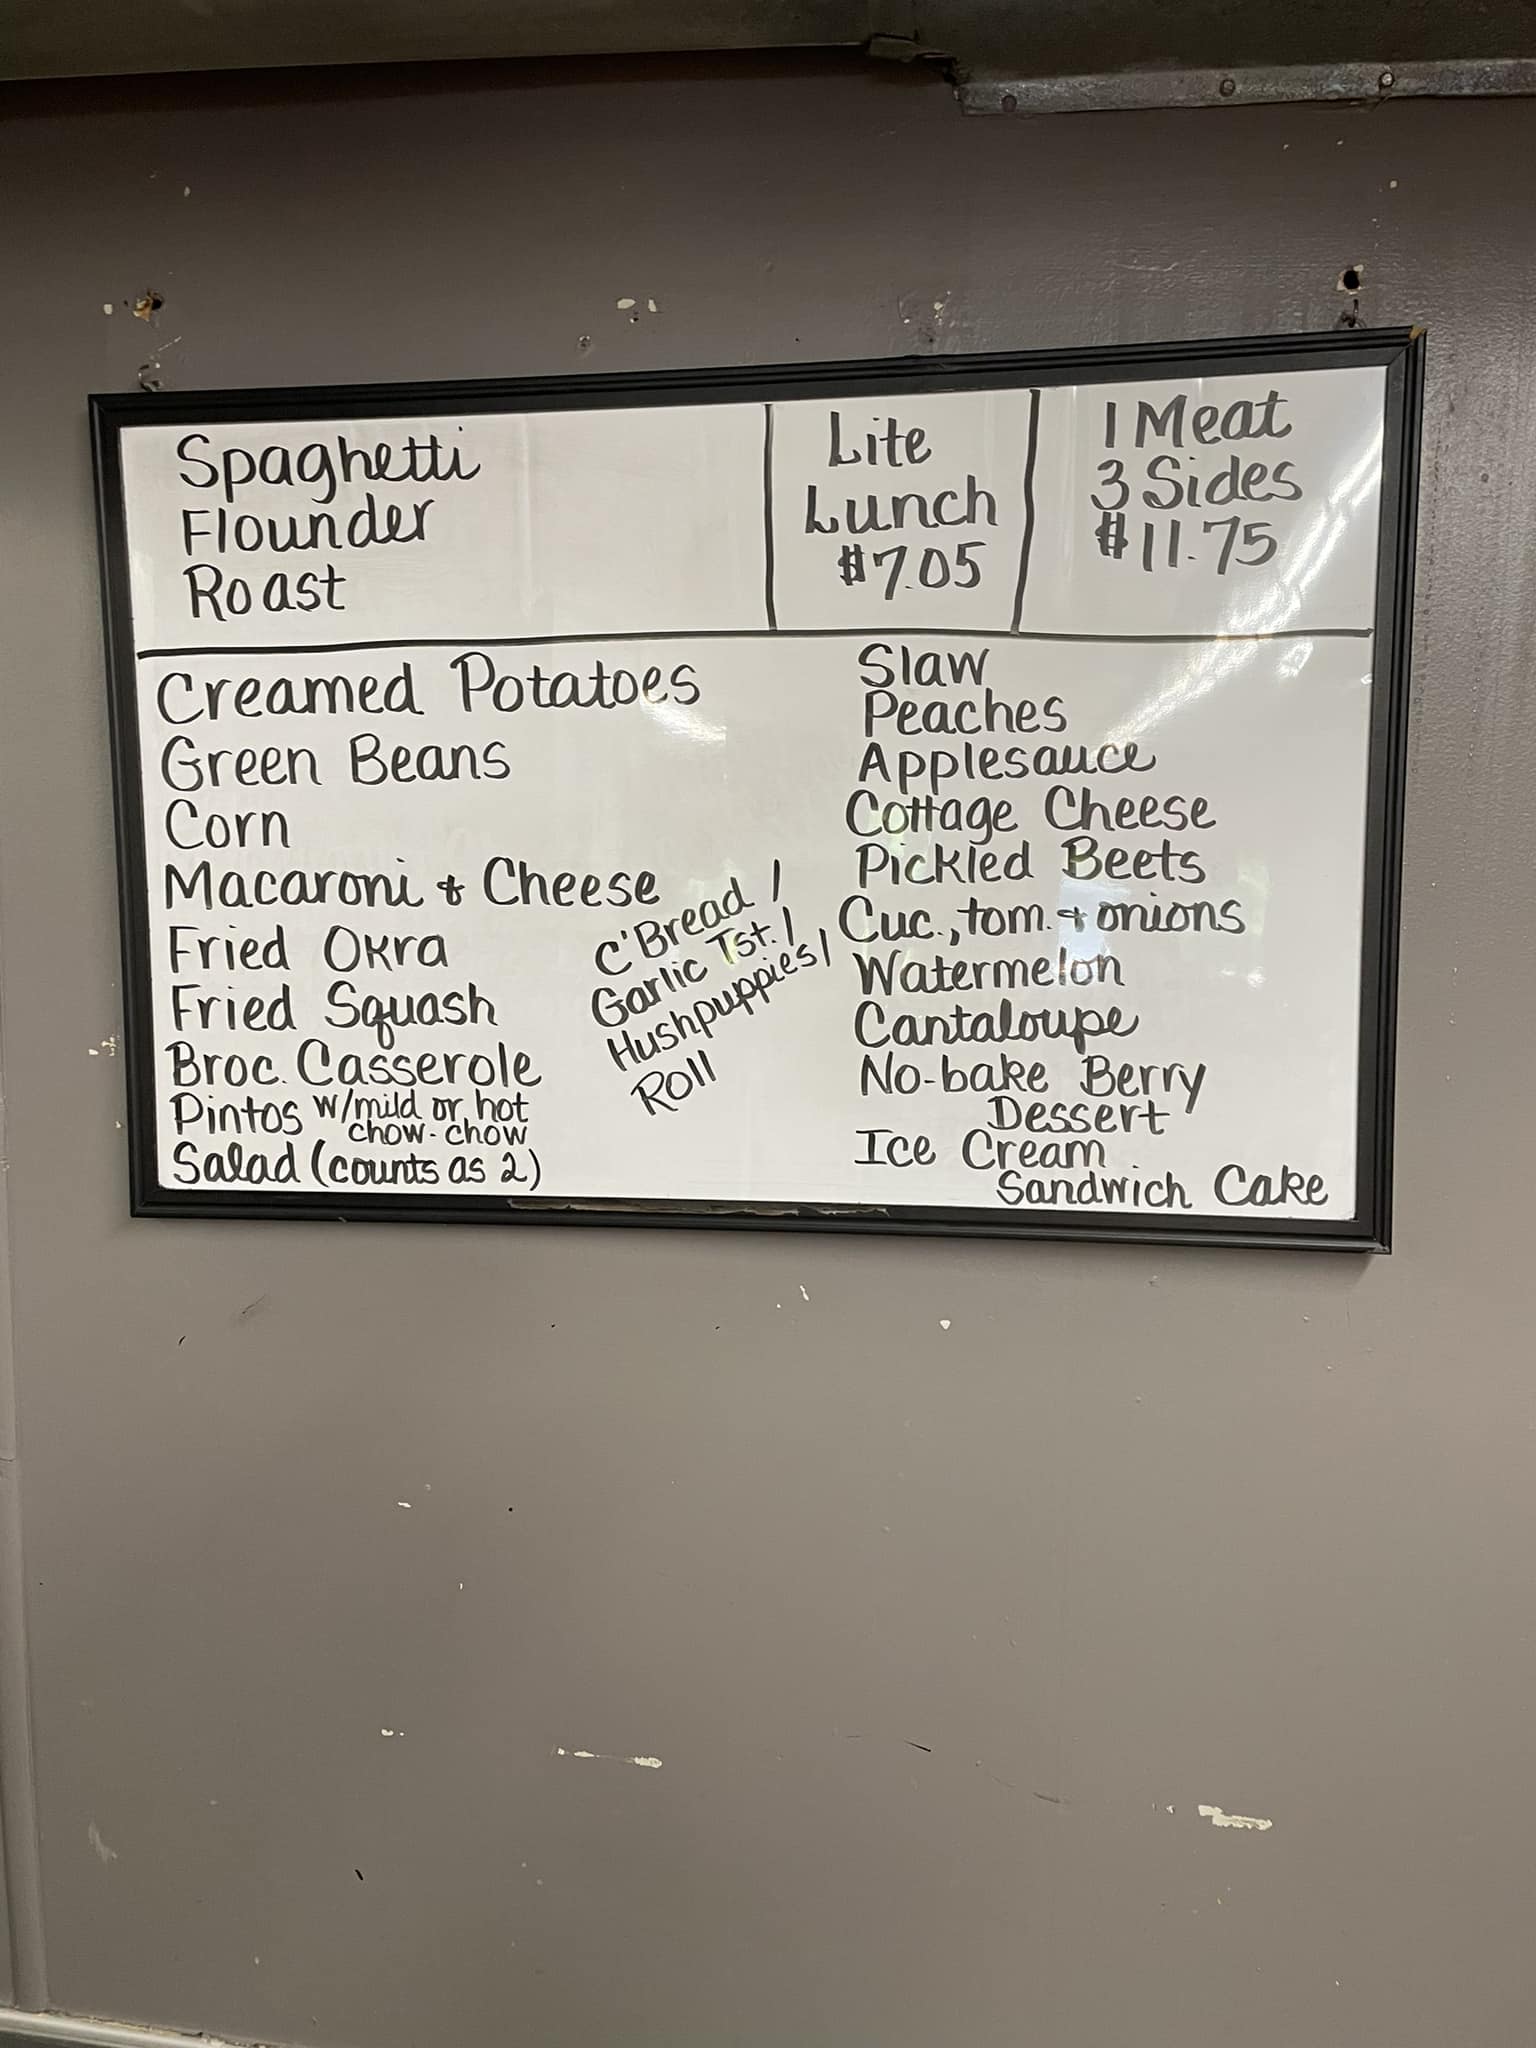 Spaghetti
Flounder
Roast
Lite
Lunch
$7.05
1 Meat
3 Sides
$11.75
Creamed Potatoes
Green Beans
Corn
Macaroni & Cheese
Fried Okra
Fried Squash
Broc. Casserole
Pintos w/mild or hot
chow-chow
Salad (counts as 2)
C'Bread /
Garlic Tst. /
Hushpuppies /
Roll
Slaw
Peaches
Applesauce
Cottage Cheese
Pickled Beets
Cuc., tom. & onions
Watermelon
Cantaloupe
No-bake Berry
Dessert
Ice Cream
Sandwich Cake